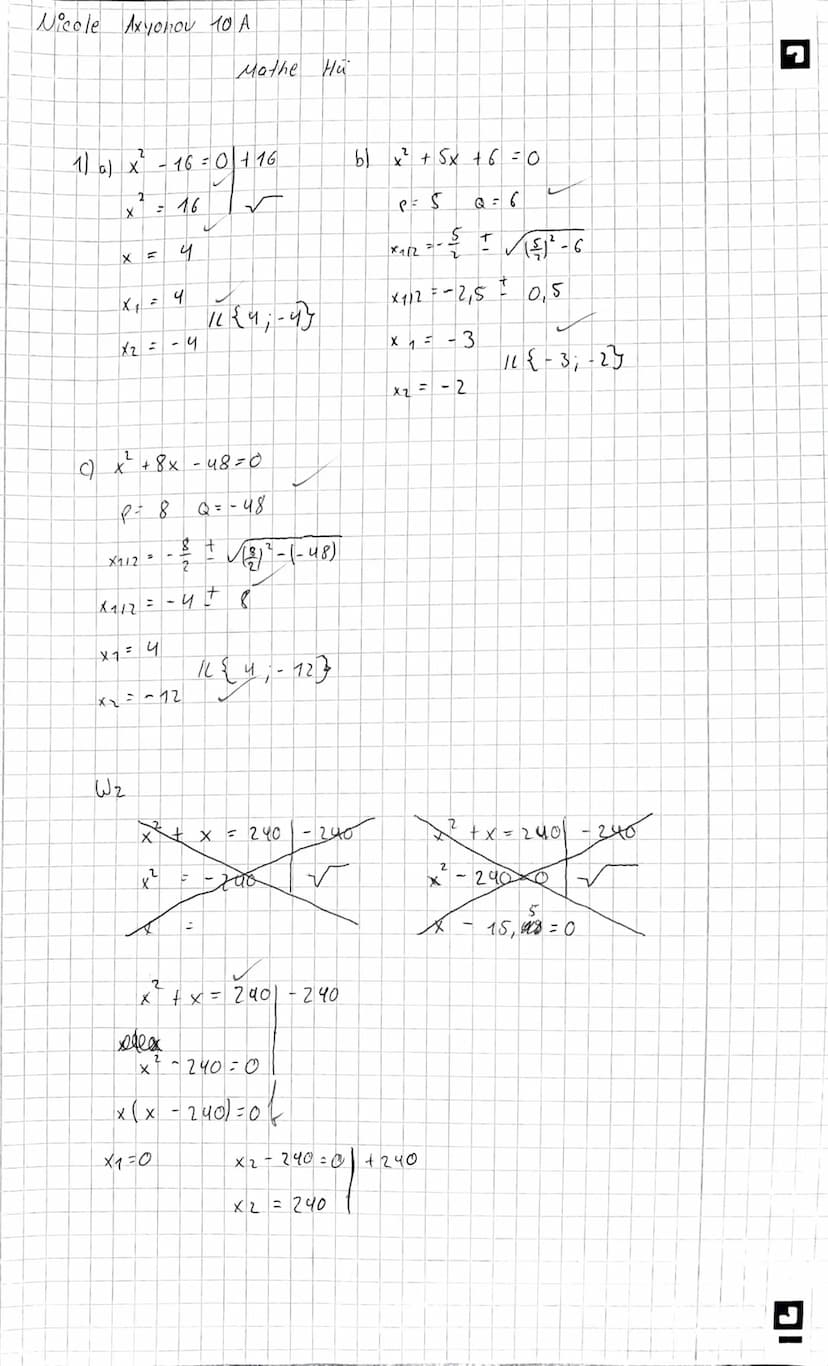 Nicole Axyonov 10 A
Mathe Hü
1) a) x² - 16 = 0 | + 16
x² = 16 | √
x = 4
x₁ = 4
x₂ = - 4
𝕃 {4 ; -4}
b) x² + 5x + 6 = 0
p = 5 Q = 6
x₁/₂ = - 5/2 ± √((5/2)² - 6)
x₁/₂ = - 2,5 ± 0,5
x₁ = - 3
x₂ = - 2
𝕃 {- 3 ; - 2}
c) x² + 8x - 48 = 0
p = 8 Q = - 48
x₁/₂ = - 8/2 ± √((8/2)² - (- 48)
x₁/₂ = - 4 ± 8
x₁ = 4
x₂ = - 12
𝕃 { 4 ; - 12}
W2
x² + x = 240 | - 240
x² = - 240 | √
x =
x² + x = 240 | - 240
x² - 240 = 0 | √
x - 15,5 = 0
x² + x = 240 | - 240
x² - 240 = 0
x(x - 240) = 0
x₁ = 0
x₂ - 240 = 0 | + 240
x₂ = 240